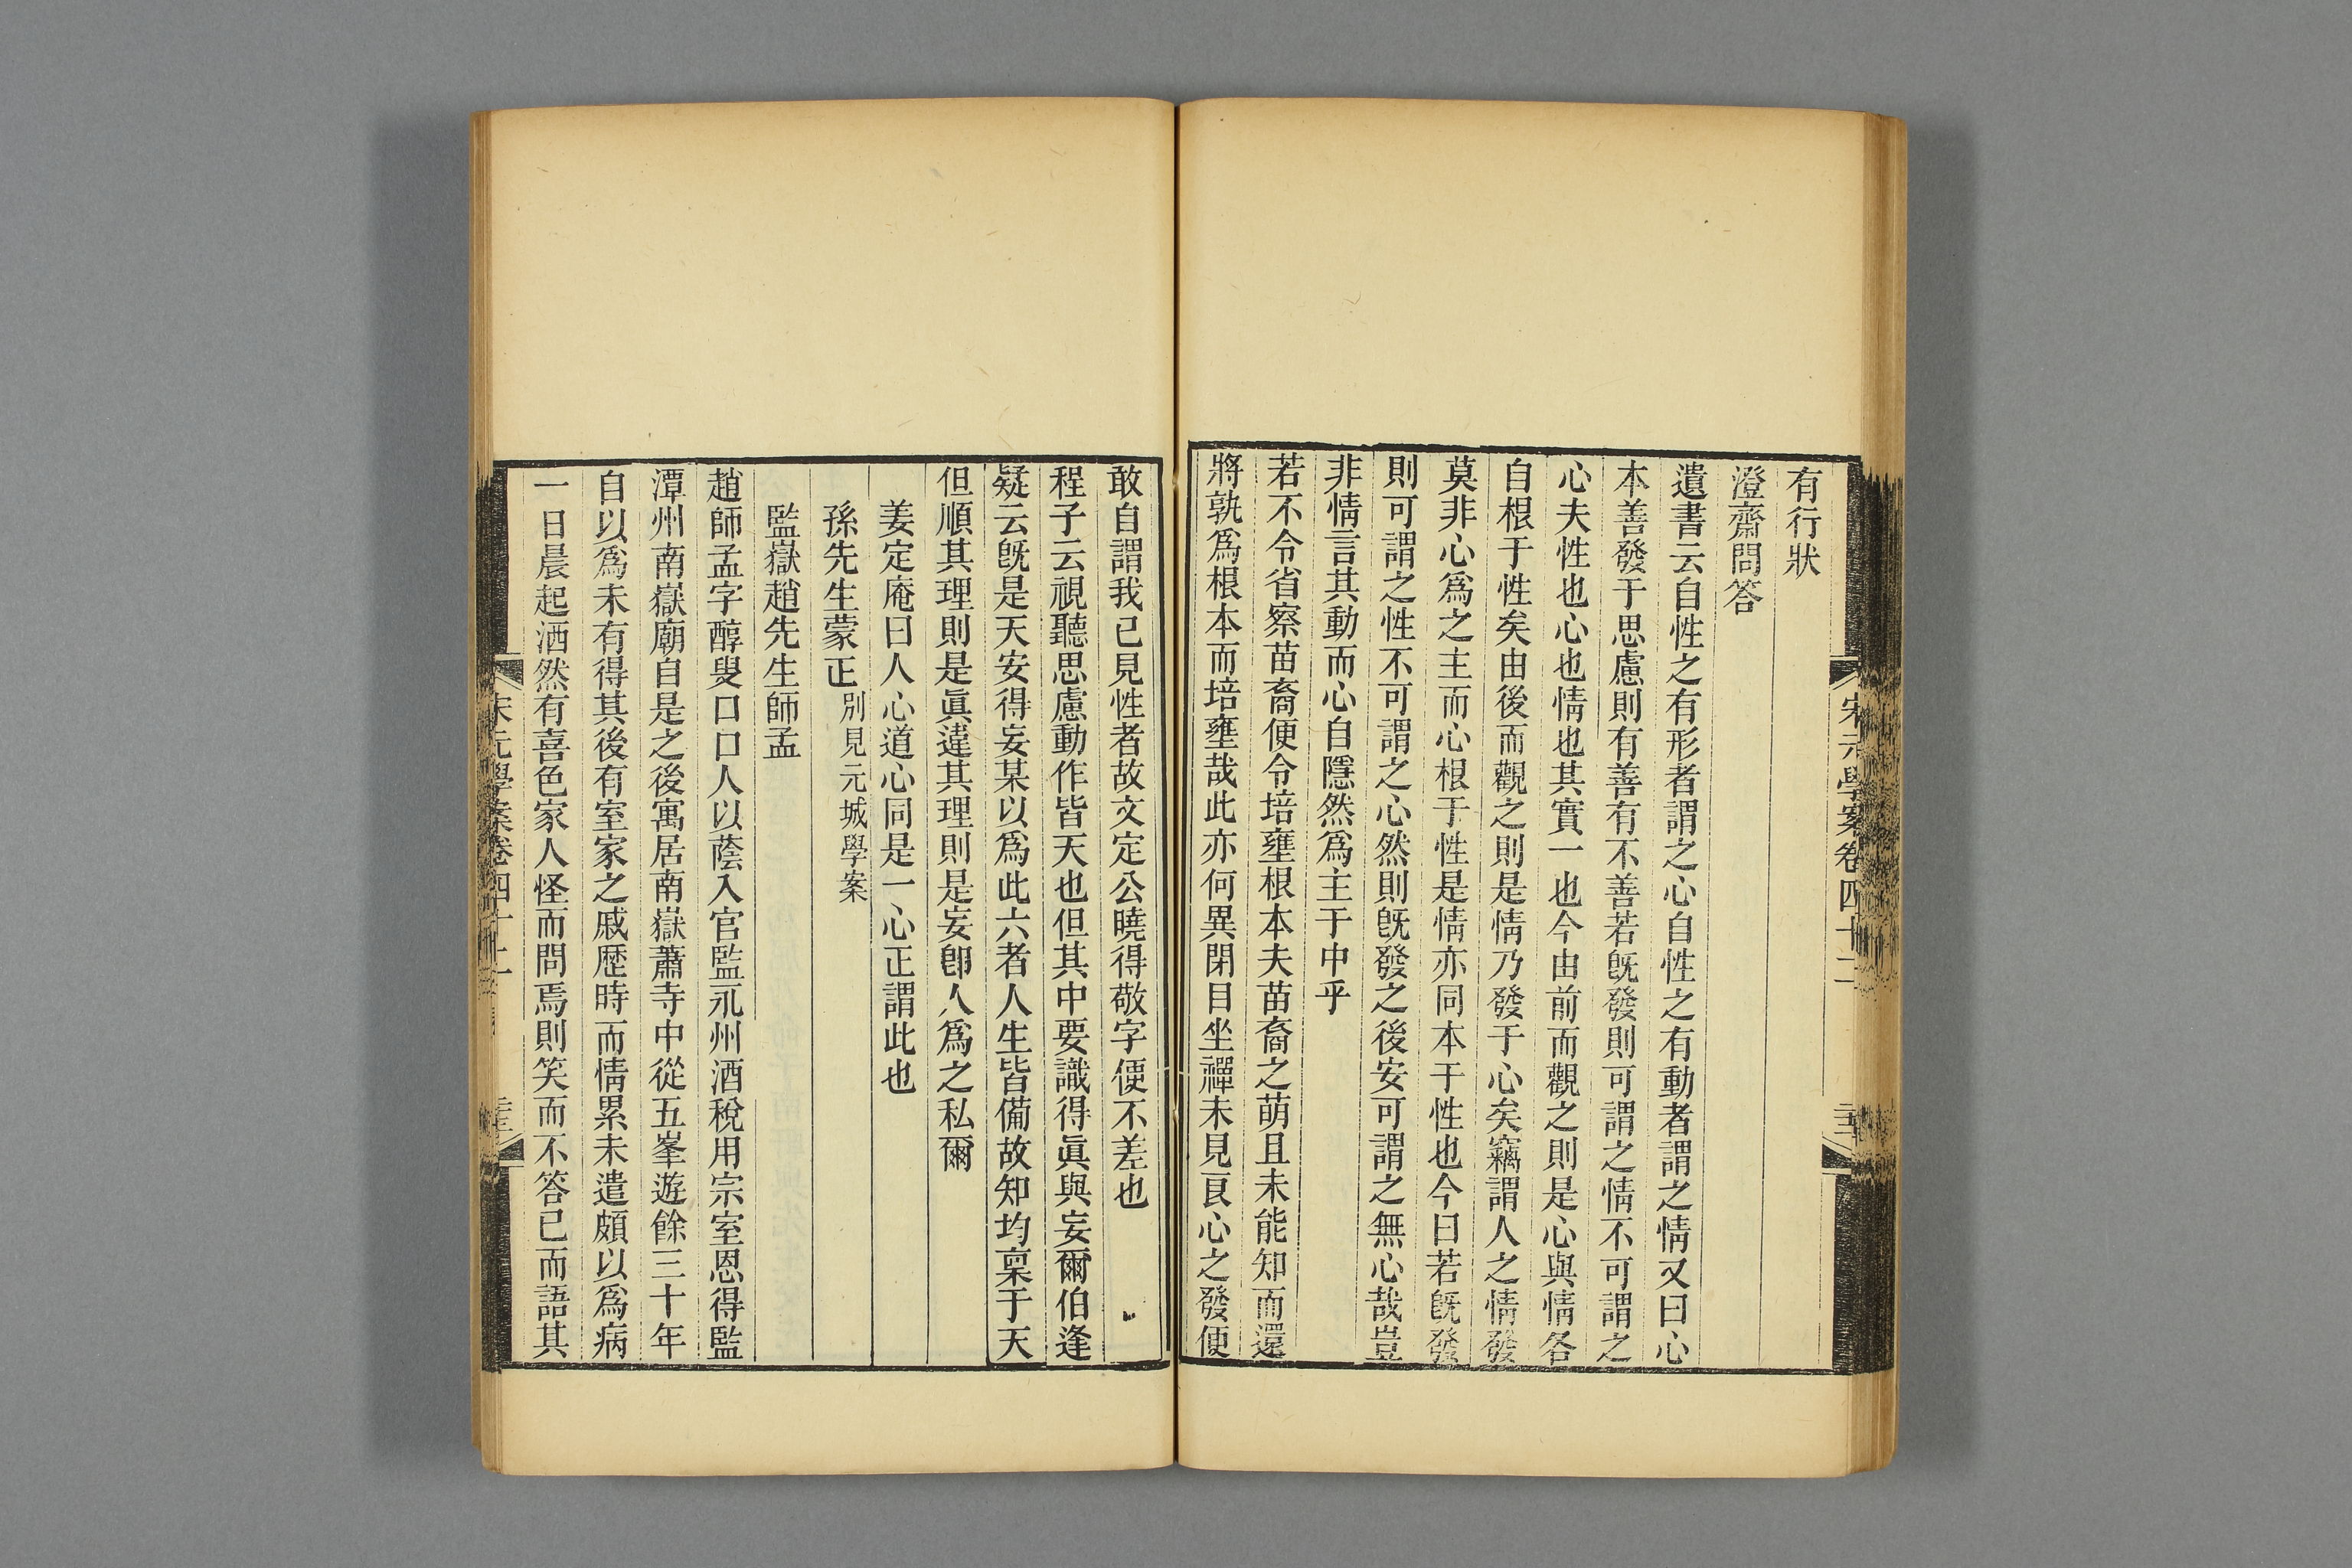 有行狀
澄齋問答
遺書云自性之有形者謂之心自性之有動者謂之情又曰心
本善發于思慮則有善有不善若旣發則可謂之情不可謂之
心夫性也心也情也其實一也今由前而觀之則是心與情各
自根于性矣由後而觀之則是情乃發于心矣竊謂人之情發
莫非心爲之主而心根于性是情亦同本于性也今日若旣發
則可謂之性不可謂之心然則旣發之後安可謂之無心哉豈
非情言其動而心自隱然爲主于中乎
若不令省察苗裔便令培壅根本夫苗裔之萌且未能知而還
將孰爲根本而培壅哉此亦何異閉目坐禪未見良心之發便
敢自謂我已見性者故文定公曉得敬字便不差也
程子云視聽思慮動作皆天也但其中要識得眞與妄爾伯逢
疑云旣是天安得妄某以爲此六者人生皆備故知均稟于天
但順其理則是眞違其理則是妄卽人爲之私爾
姜定庵曰人心道心同是一心正謂此也
孫先生蒙正別見元城學案
監嶽趙先生師孟
趙師孟字醇叟口口人以蔭入官監永州酒稅用宗室恩得監
潭州南嶽廟自是之後寓居南嶽蕭寺中從五峯遊餘三十年
自以爲未有得其後有室家之戚歷時而情累未遣頗以爲病
一日晨起洒然有喜色家人怪而問焉則笑而不答已而語其
宋元學案卷四十二
宋元學案卷四十二